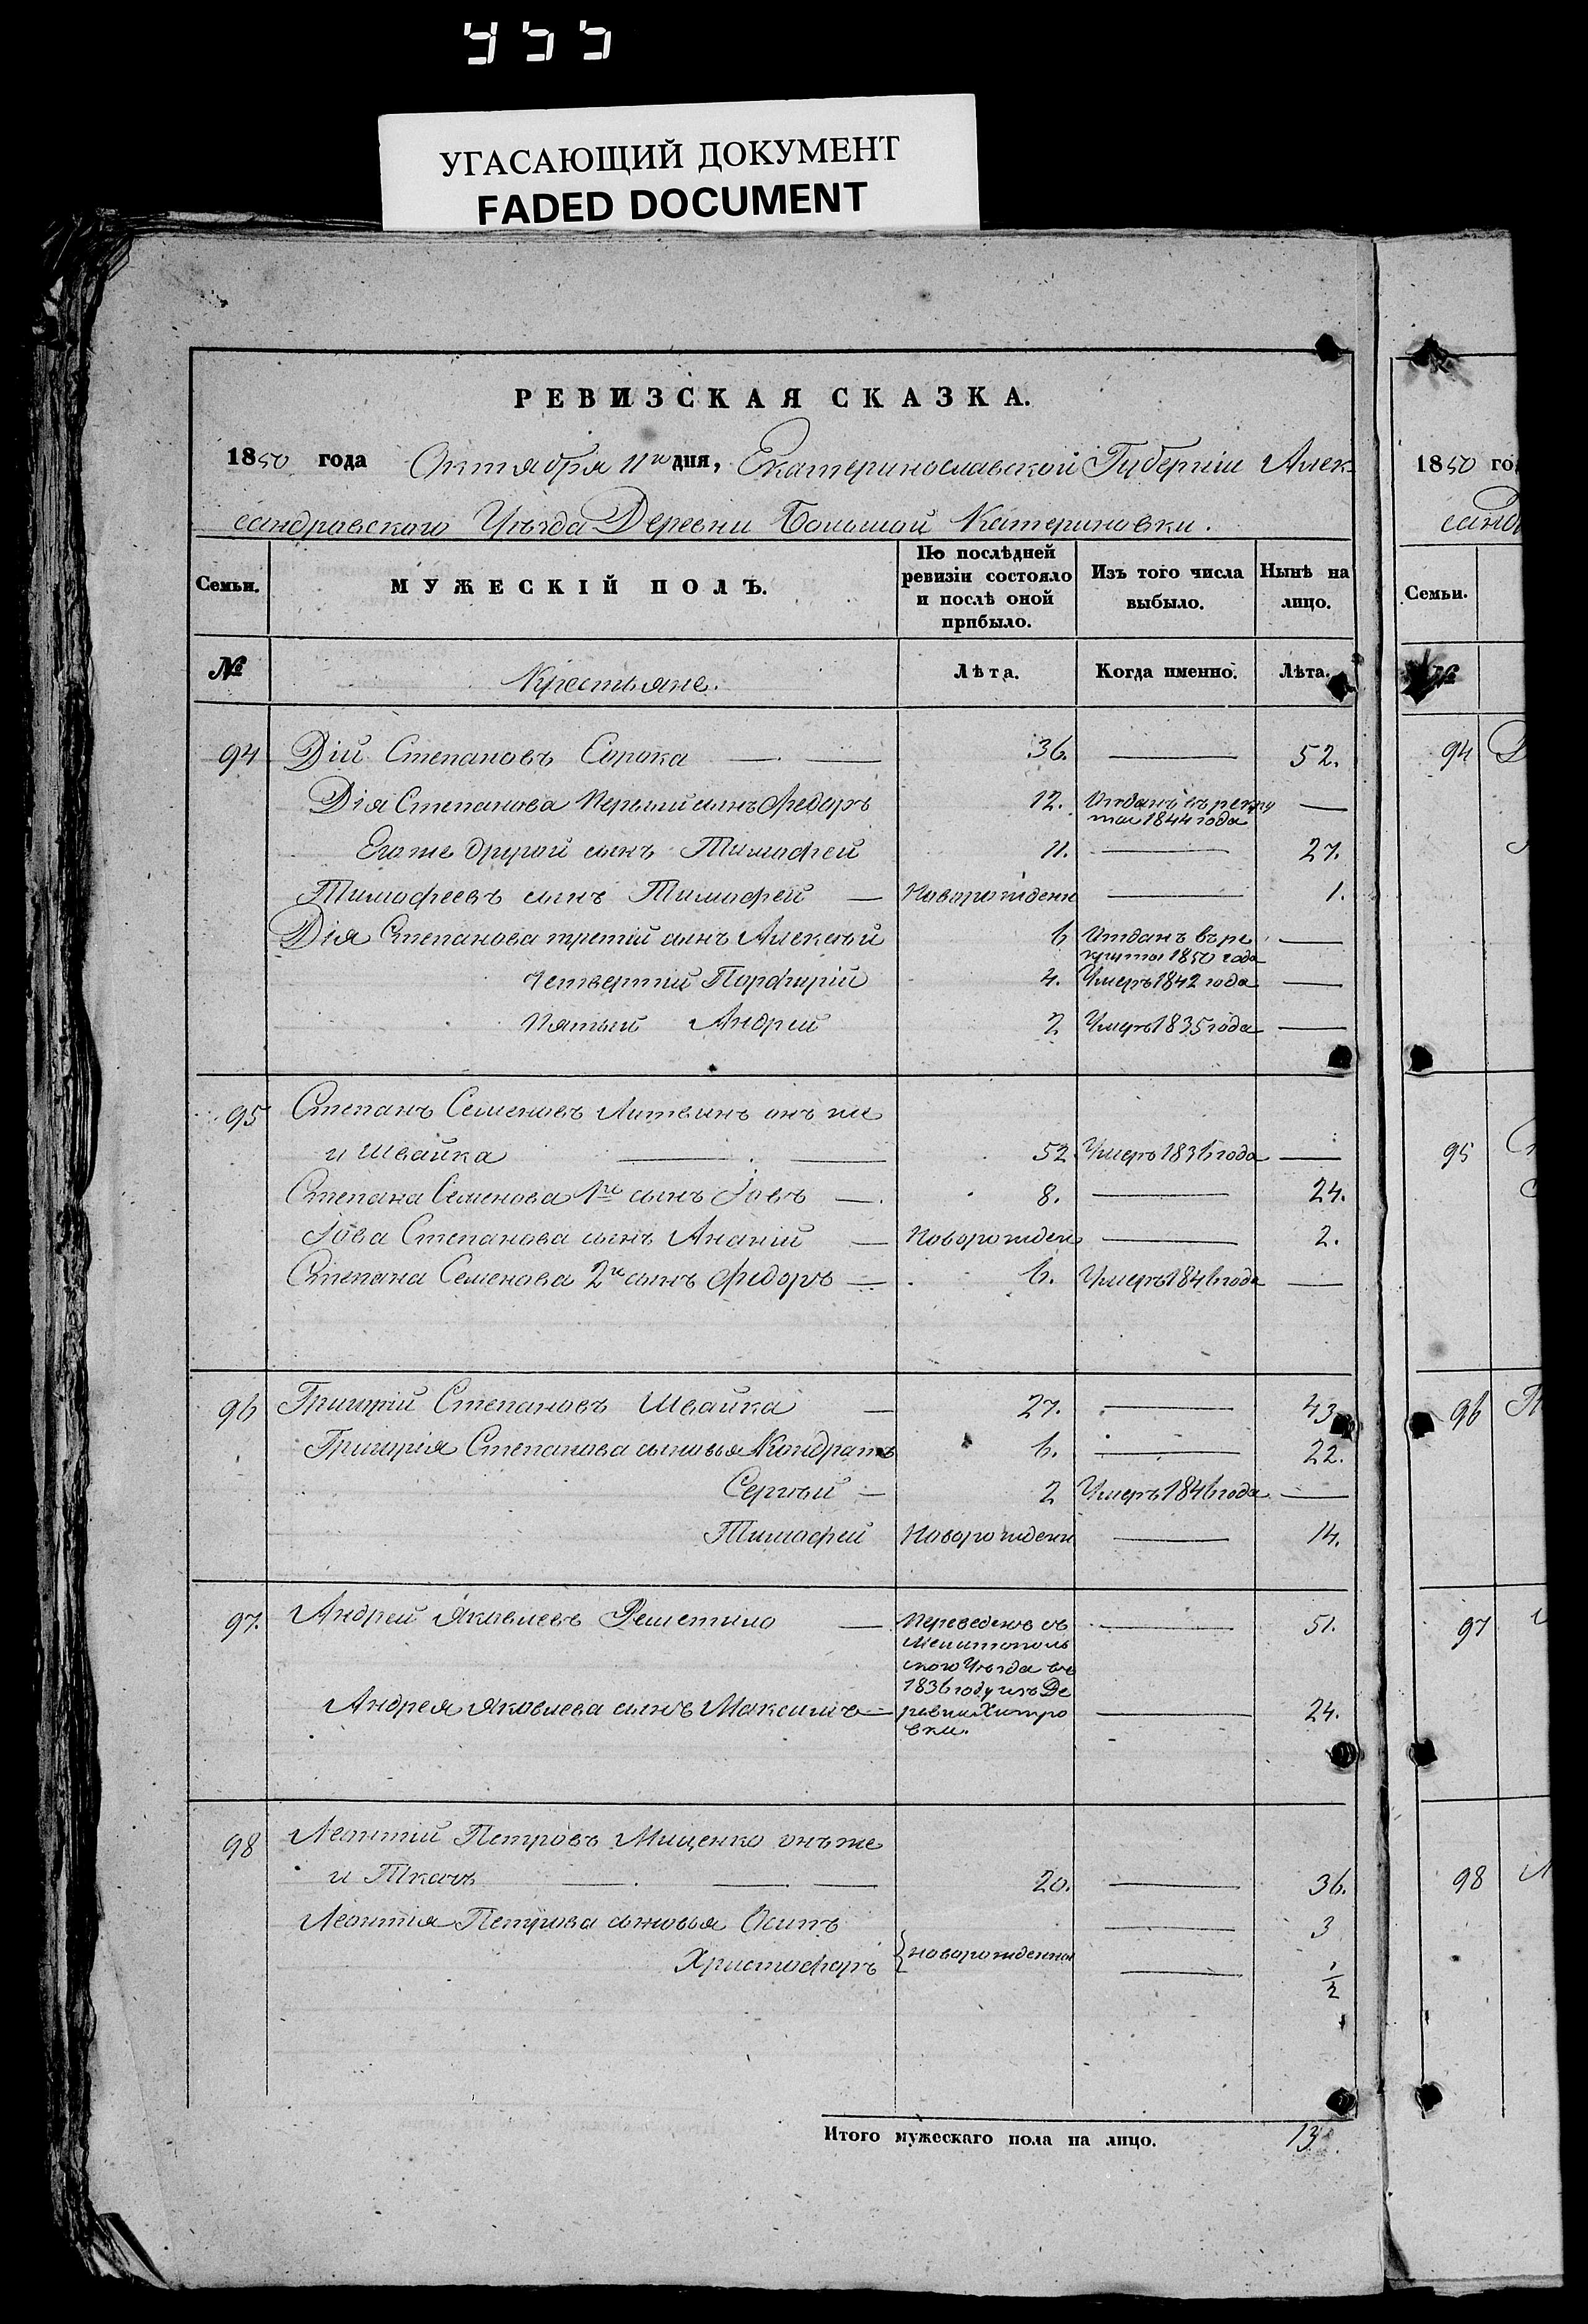 455
УГАСАЮЩИЙ ДОКУМЕНТ
FADED DOCUMENT
РЕВИЗСКАЯ СКАЗКА.
1850 года Октября 11го дня, Екатеринославской Губерніи Алек
сандравского Уѣзда Деревни Большой Катериновки.
Семьи.
МУЖЕСКІЙ ПОЛЪ.
По послѣдней ревизіи состояло и послѣ оной прибыло.
Изъ того числа выбыло.
Нынѣ на лицо.
№ Крестьяне. Лѣта. Когда именно. Лѣта.
94 Дій Степановъ Сорока — 36. — 52.
Дія Степанова первый сынъ Федоръ 12. Отданъ въ рекру
ты 1844 года —
Его же другой сынъ Тимофей 11. — 27.
Тимофеевъ сынъ Тимофей — Новорожденн — 1.
Дія Степанова третій сынъ Алексѣй 6 Отданъ въ ре
круты 1850 года —
Четвертый Порфирій 4. Умеръ 1842 года —
Пятый Андрей 2 Умеръ 1835 года —
95 Степанъ Семеновъ Литвинъ онъ же
и Швайка — 52 Умеръ 1836 года —
Степана Семенова 1й сынъ Іовъ — 8. — 24.
Іова Степанова сынъ Ананій — Новорожден — 2.
Степана Семенова 2й сынъ Федоръ — 6. Умеръ 1846 года —
96 Григорій Степановъ Швайка — 27. — 43
Григорія Степанова сыновья Кондратъ 6. — 22.
Сергѣй — 2 Умеръ 1846 года —
Тимофей Новорожденн — 14.
97. Андрей Яковлевъ Решетило — Переведенъ съ — 51.
Мелитополь
ского Уѣзда въ
1836 году изъ Де
Андрея Яковлева сынъ Максимъ — ревни Хитро — 24.
вки.
98 Леонтій Петровъ Мищенко онъ же
и Ткачъ — 20. — 36.
Леонтія Петрова сыновья Осипъ — 3
Христофоръ } новорожденныя — 1/2
Итого мужескаго пола на лицо. 13
1850 го
санд
Семьи.
№
94
95
96
97
98